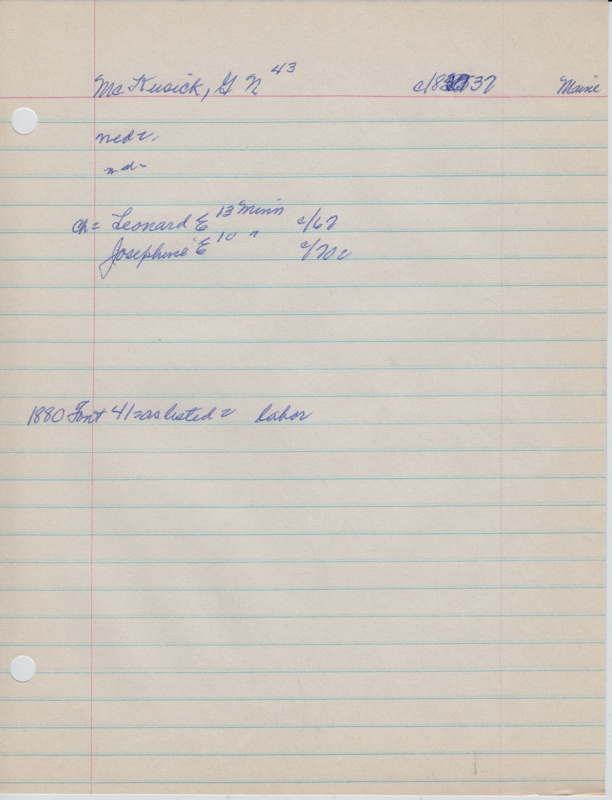 McKusick, G N 43 c/837 Maine
med=
nd-
ch= Leonard E 13 Minn c/67
Josephine E 10 " c/70=
1880 Font 41=as listed= labor